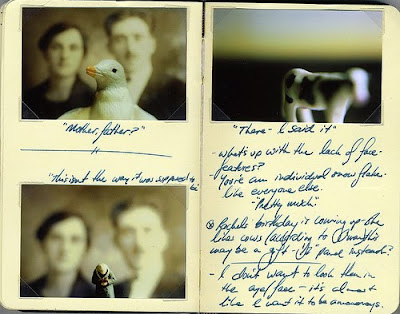 "Mother, father?"
"This isn't the way it was supposed to be
"There - I said it"
- what's up with the lack of face
features?
- You're an individual snow flake.
like everyone else.
"Pretty much"
Rachel's birthday is coming up - She
likes cows (according to
may be a gift - or panel instead?
- I don't want to look them in
the eye/face - it's almost
like I want it to be anonymous.